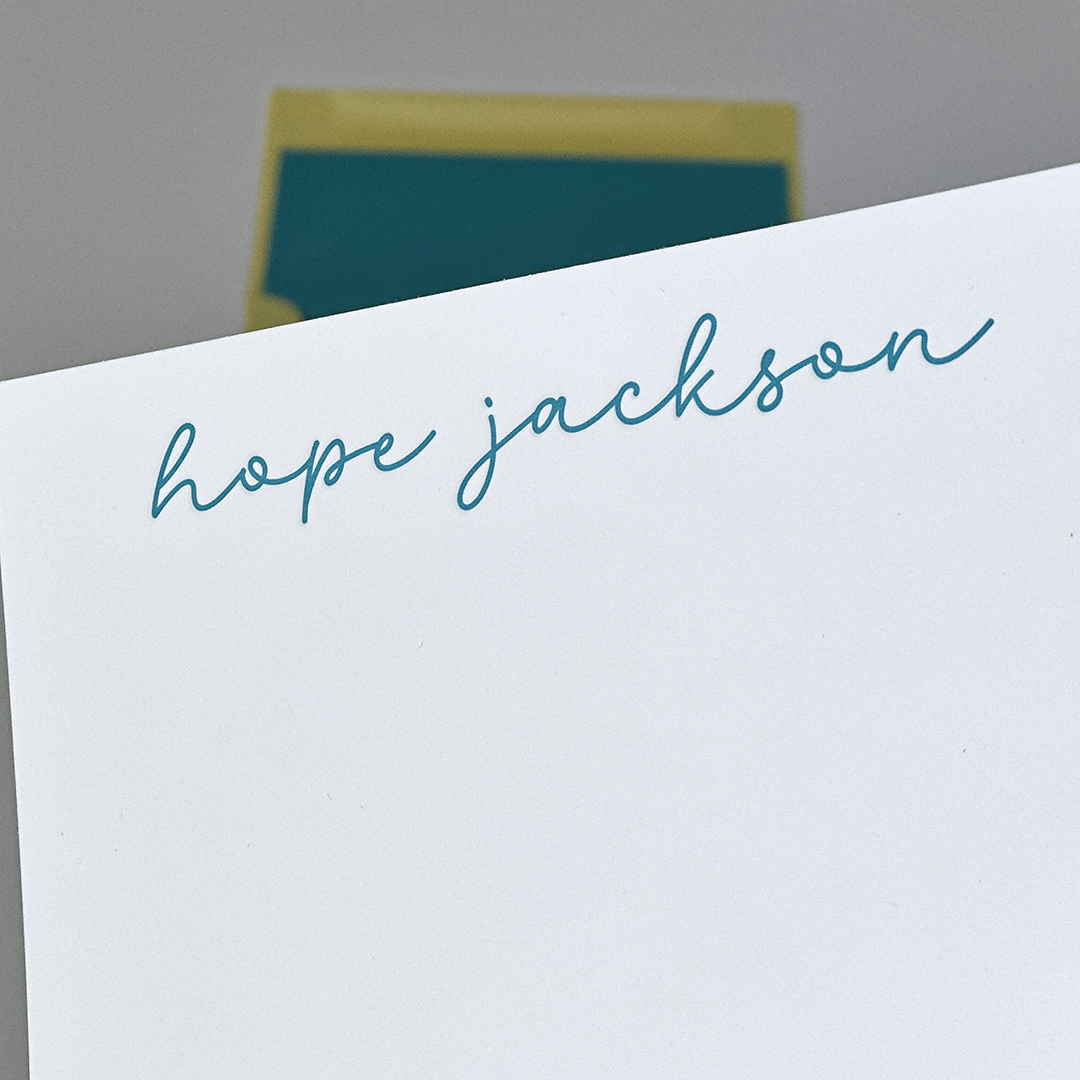 hope jackson